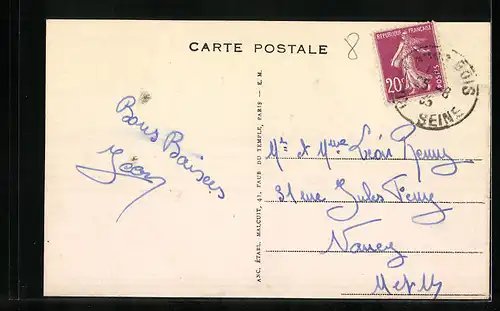 CARTE POSTALE
8
REPUBLIQUE FRANÇAISE
20c
POSTES
BOIS
SEINE
Bons Baisers
Jean
ANC. ÉTABL. MALCUIT, 41, FAUB. DU TEMPLE, PARIS — E. M.
Mr et Mme Léon Remy
31 rue Jules Ferry
Nancy
M et M